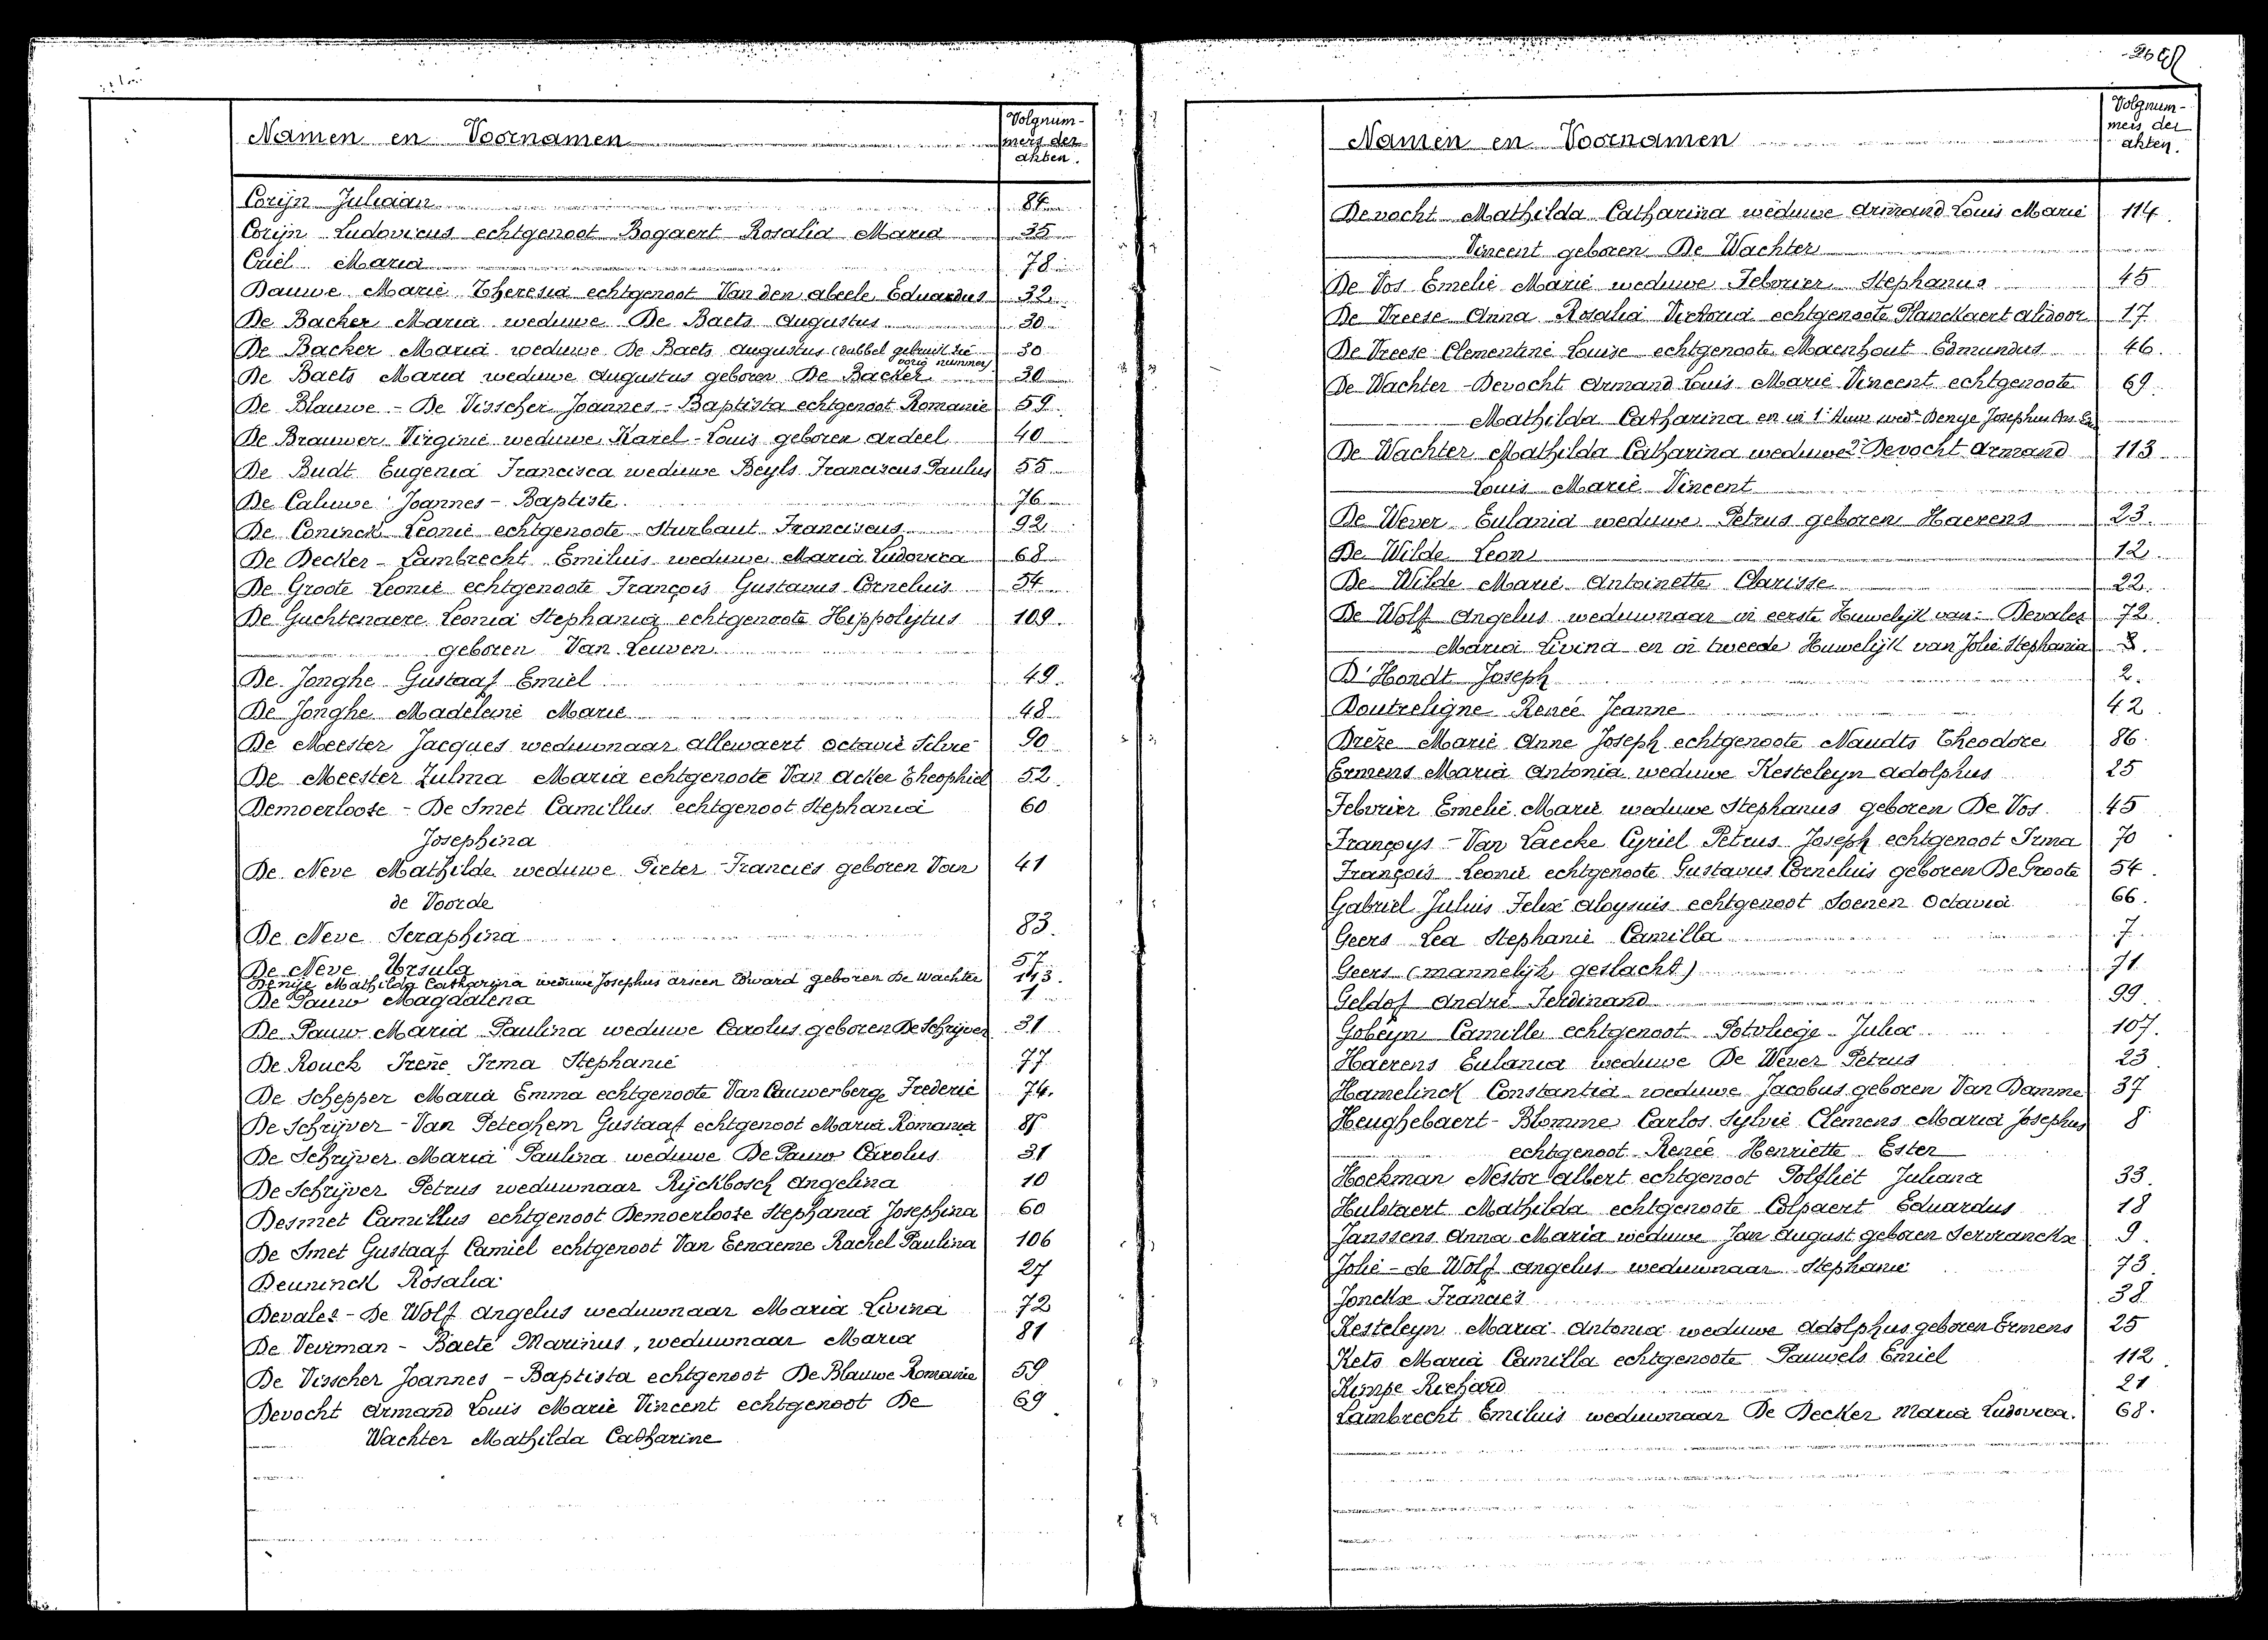 Namen en Voornamen
Volgnum-
mers der
akten.
Corijn Juliaan 84
Corijn Ludovicus echtgenoot Bogaert Rosalia Maria 35
Criel Maria 78
Dauwe Marie Theresia echtgenoot Van den abeele Eduardus 32
De Backer Maria weduwe De Baets Augustus 30
De Backer Maria weduwe De Baets Augustus (dubbel gebruikt zie 30
vorig nummer)
De Baets Maria weduwe Augustus geboren De Backer 30
De Blauwe - De Visscher Joannes - Baptista echtgenoot Romanie 59.
De Brauwer Virginie weduwe Karel - Louis geboren Ardeel 40
De Budt Eugenia Francisca weduwe Beyls Franciscus Paulus 55
De Caluwe Joannes - Baptiste 76
De Coninck Leonie echtgenoote Sturbaut Franciscus 92
De Decker - Lambrecht Emilius weduwe Maria Ludovica 68
De Groote Leonie echtgenoote François Gustavus Cornelius 54
De Guchtenaere Leonia Stephania echtgenoote Hippolytus 109.
geboren Van Leuven
De Jonghe Gustaaf Emiel 49.
De Jonghe Madeleine Marie 48
De Meester Jacques weduwnaar allewaert Octavie Silvie 90
De Meester Zulma Maria echtgenoote Van Acker Theophiel 52.
Demoerloose - De Smet Camillus echtgenoot Stephania 60
Josephina
De Neve Mathilde weduwe Pieter - Francies geboren Van 41
de Voorde
De Neve Seraphina 83.
De Neve Ursula 57
Denije Mathilda Catharina weduwe Josephus arseen Edward geboren De Wachter 113.
De Pauw Magdalena 1
De Pauw Maria Paulina weduwe Carolus geboren De Schrijver 31
De Rouck Irene Irma Stephanie 77
De Schepper Maria Emma echtgenoote Van Cauwenberge Frederic 74.
De Schrijver - Van Peteghem Gustaaf echtgenoot Maria Romania
De Schrijver Maria Paulina weduwe De Pauw Carolus 31
De Schrijver Petrus weduwnaar Rijckbosch Angelina 10
Desmet Camillus echtgenoot Demoerloose Stephania Josephina 60
De Smet Gustaaf Camiel echtgenoot Van Eenaeme Rachel Paulina 106
Deuninck Rosalia 27
Devalez - De Wolf Angelus weduwnaar Maria Livina 72
De Veirman - Baete Marinus, weduwnaar Maria 81
De Visscher Joannes - Baptista echtgenoot De Blauwe Romanie 59
Devocht Armand Louis Marie Vincent echtgenoot De 69
Wachter Mathilda Catharine
Namen en Voornamen
Volgnum-
mers der
akten.
Devocht Mathilda Catharina weduwe Armand Louis Marie 114.
Vincent geboren De Wachter
De Vos Emelie Marie weduwe Febvrier Stephanus 45
De Vreese Anna Rosalia Victoria echtgenoote Planckaert Alidoor 17
De Vreese Clementine Louise echtgenoote Maenhout Edmundus 46.
De Wachter - Devocht Armand Louis Marie Vincent echtgenoote 69.
Mathilda Catharina en in 1e Huw wed. Denije Josephus Ars.
De Wachter Mathilda Catharina weduwe 2° Devocht Armand 113
Louis Marie Vincent
De Wever Eulania weduwe Petrus geboren Haerens 23.
De Wilde Leon 12.
De Wilde Marie Antoinette Clarisse 22.
De Wolf Angelus weduwnaar in eerste Huwelijk van: Devalez 72.
Maria Livina en in tweede Huwelijk van Jolie Stephania
D'Hondt Joseph 2.
Doutreligne Renée Jeanne 42.
Drèze Marie Anne Joseph echtgenoote Naudts Theodore 86.
Ermens Maria Antonia weduwe Kesteleyn Adolphus 25
Febvrier Emelie Marie weduwe Stephanus geboren De Vos. 45
Françoys - Van Laecke Cyriel Petrus Joseph echtgenoot Irma 70
François Leonie echtgenoote Gustavus Cornelius geboren De Groote 54.
Gabriel Julius Felix Aloysius echtgenoot Soenen Octavia 66.
Geers Lea Stephanie Camilla 7.
Geers (mannelijk geslacht) 71
Geldof André Ferdinand 99
Gobeyn Camille echtgenoot Potvliege - Julia 107.
Haerens Eulania weduwe De Wever Petrus 23
Hamelinck Constantia weduwe Jacobus geboren Van Damme 37
Heughebaert - Blomme Carlos Sylvie Clemens Maria Josephus 8
echtgenoot Renée Henriette Ester
Hoekman Nestor albert echtgenoot Polfliet Juliana 33.
Hulstaert Mathilda echtgenoote Colpaert Eduardus 18
Janssens Anna Maria weduwe Jan August geboren Servranckx 9.
Jolie - de Wolf angelus weduwnaar Stephanie 73
Jonckx Francies 38
Kesteleyn Maria Antonia weduwe Adolphus geboren Ermens 25
Kets Maria Camilla echtgenoote Pauwels Emiel 112.
Kimpe Richard 21
Lambrecht Emilius weduwnaar De Decker Maria Ludovica. 68.